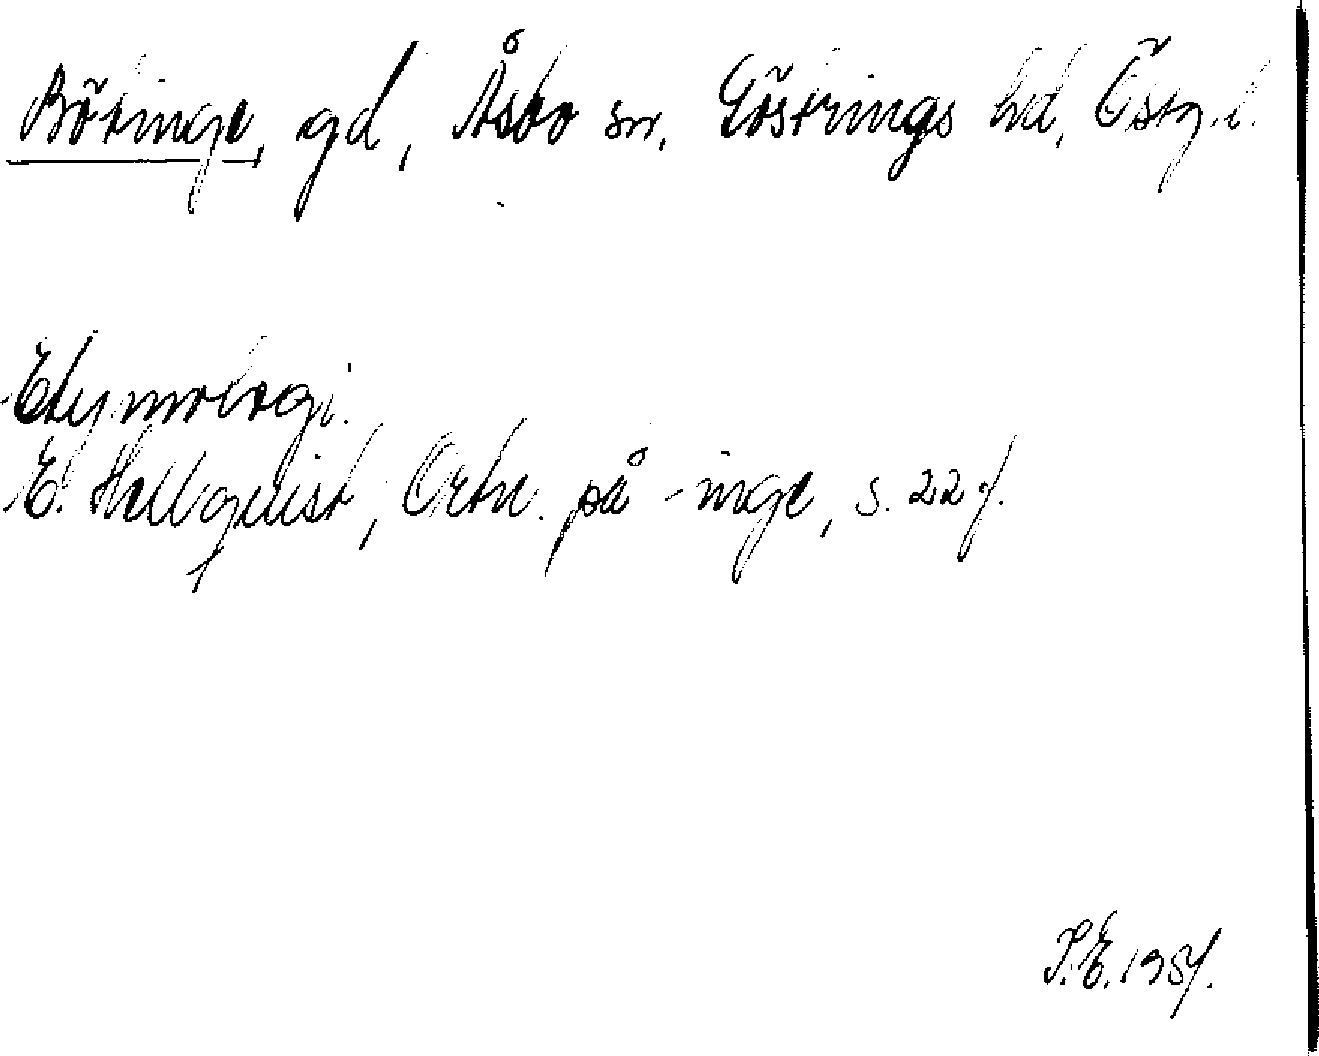 Böringe, gd, Åsbo sn, Göstrings hd, Östg.l.
Etymologi.
E. Hellquist, Ortn. på -inge, s. 22 f.
S.E. 1951.